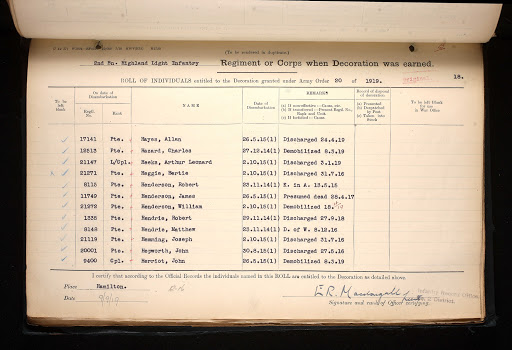 (To be rendered in duplicate)
2nd Bn. Highland Light Infantry Regiment or Corps when Decoration was earned.
ROLL OF INDIVIDUALS entitled to the Decoration granted under Army Order 20 of 1919.
18.
To be left blank
On date of Disembarkation
Regtl. No.
Rank
NAME
Date of Disembarkation
REMARKS
(a) If non-effective—Cause, etc.
Record of disposal of decoration
(a) Presented
(b) Despatched by Post
(c) Taken into Stock
17141 Pte. Hayes, Allan 26.5.15(1) Discharged 24.4.19
12513 Pte. Hazard, Charles 27.12.14(1) Demobilized 8.3.19
21147 L/Cpl. Heeks, Arthur Leonard 2.10.15(1) Discharged 3.1.19
21271 Pte. Heggie, Bertie 2.10.15(1) Discharged 31.7.16
8115 Pte. Henderson, Robert 23.11.14(1) K. in A. 13.5.15
11749 Pte. Henderson, James 26.5.15(1) Presumed dead 28.4.17
21272 Pte. Henderson, William 2.10.15(1) Demobilized 18.
1335 Pte. Hendrie, Robert 29.11.14(1) Discharged 27.9.18
8148 Pte. Hendrie, Matthew 23.11.14(1) D. of W. 8.12.16
21119 Pte. Hemming, Joseph 2.10.15(1) Discharged 31.7.16
20001 Pte. Hepworth, John 30.6.15(1) Discharged 27.5.16
9400 Cpl. Herriot, John 26.5.15(1) Demobilized 8.3.19
I certify that according to the Official Records the individuals named in this ROLL are entitled to the Decoration as detailed above.
Place Hamilton.
Date
Signature and rank of Officer certifying.